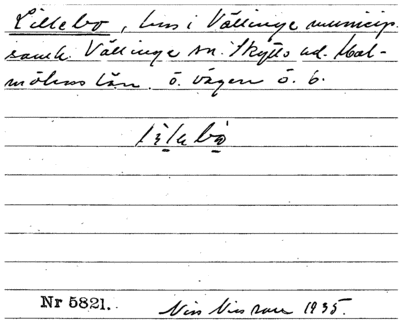 Lillebo, hus i Vällinge municip.
samh. Vällinge sn. Skytts hd. Mal-
möhus län. ö. vägen ö. b.
Nr 5821. Nils Nilsson 1935.